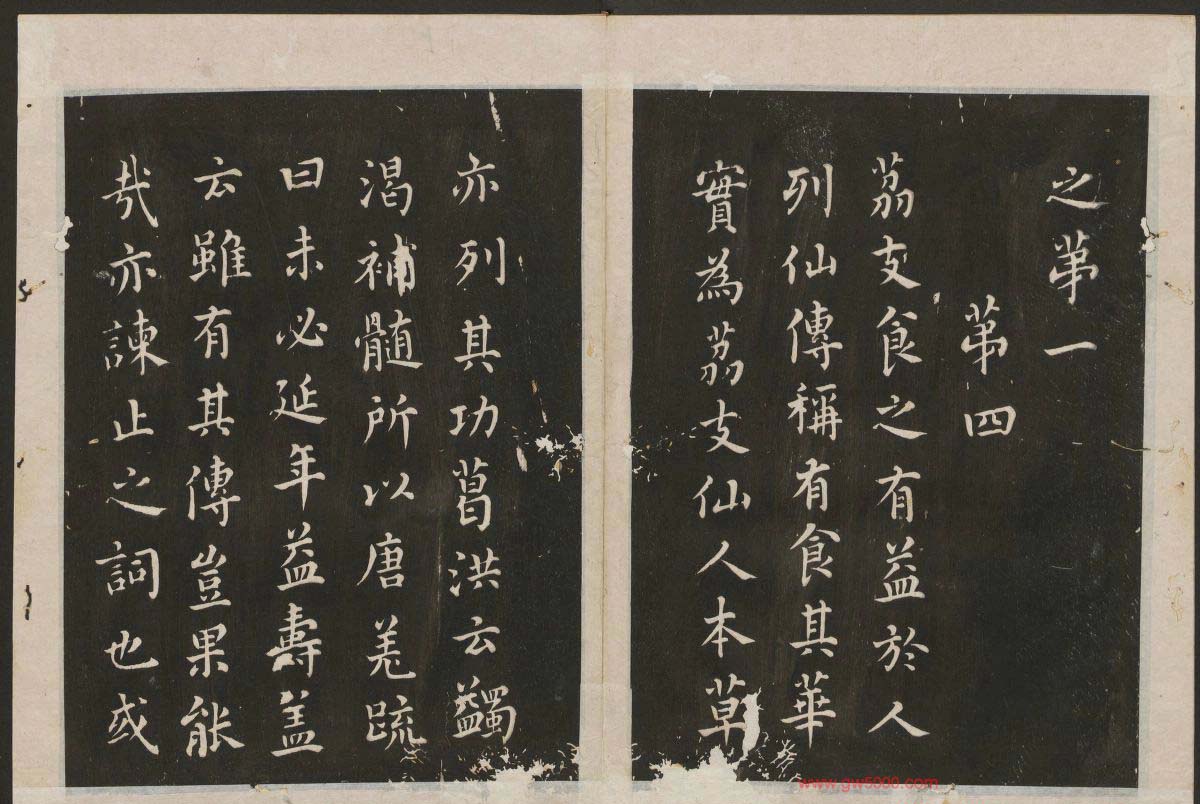 之第一
第四
荔支食之有益於人
列仙傳稱有食其華
實為荔支仙人本草
亦列其功葛洪云蠲
渴補髓所以唐羌疏
曰未必延年益壽盖
云雖有其傳豈果能
哉亦諫止之詞也或
www.gw5000.com